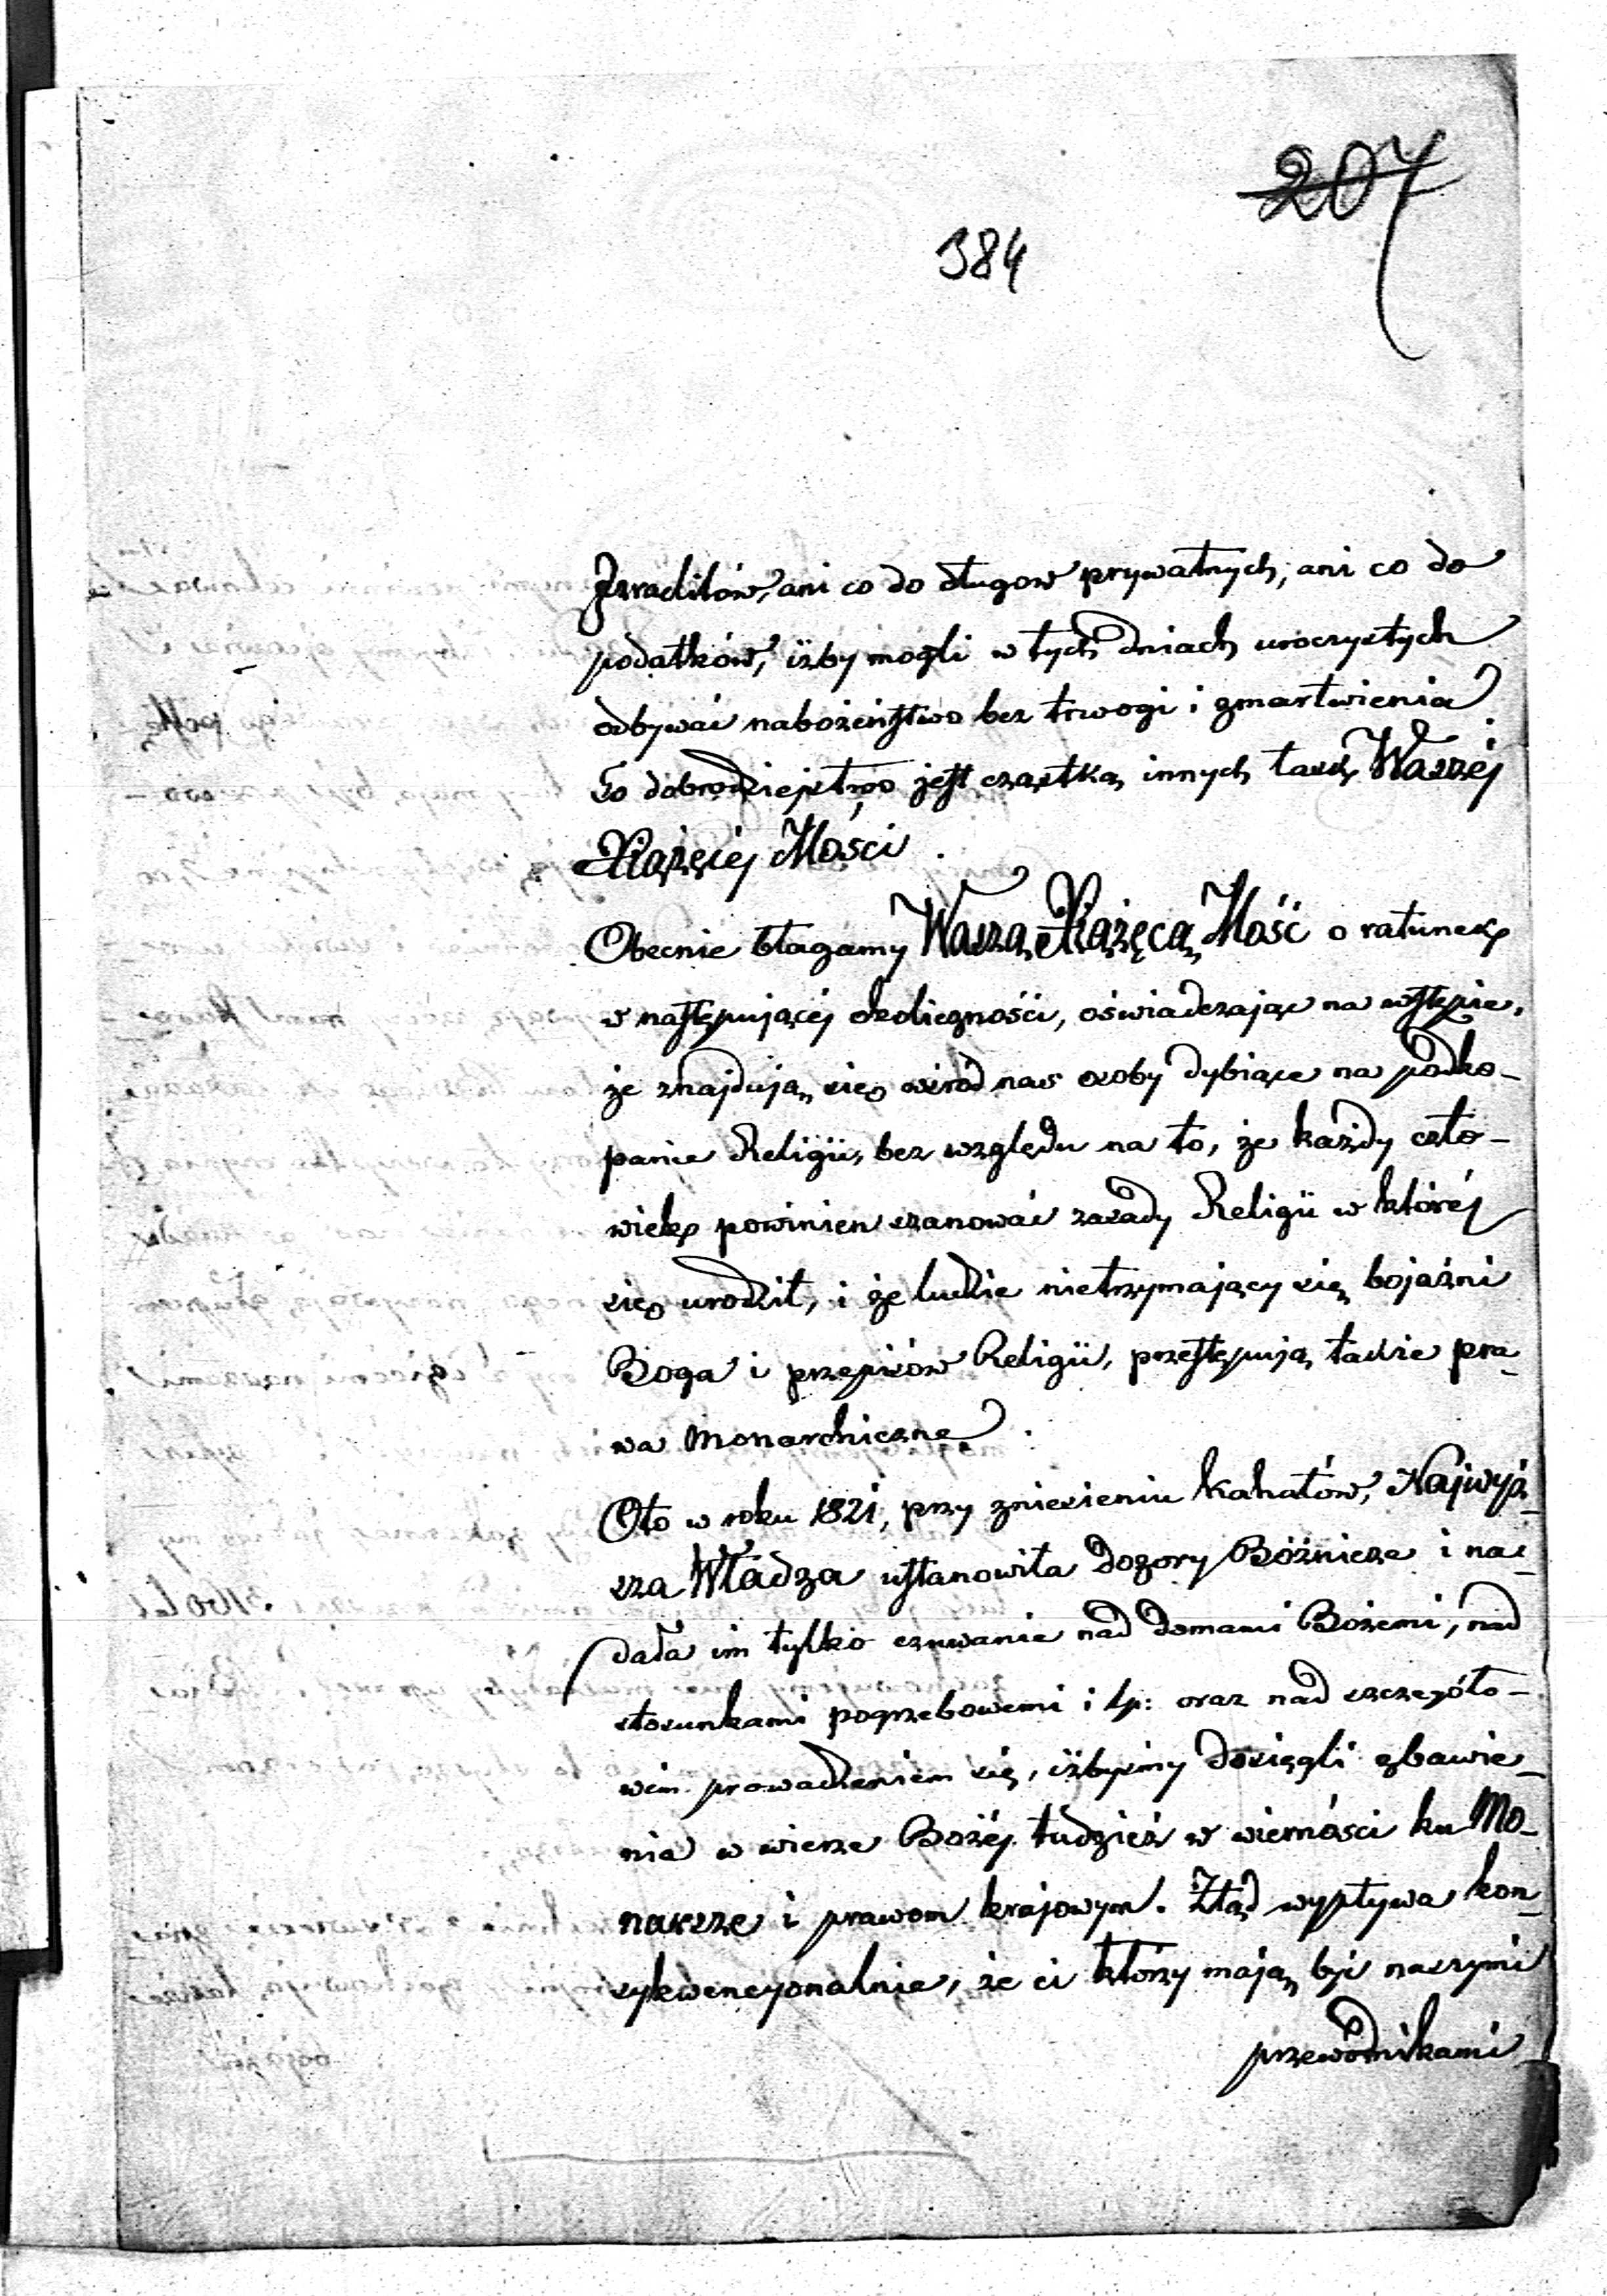 207
384
Izraelitów, ani co do długow prywatnych, ani co do
podatków, iżby mogli w tych dniach uroczystych
odbywać nabożeństwo bez trwogi i zmartwienia
to dobrodziejstwo jest cząstką innych łask Waszéj
Xiążęcéj Mości.
Obecnie błagamy Waszą Xiążęcą Mość o ratunek
w następującéj okoliczności, oświadczając na wstępie,
że znajdują się wśród nas osoby dybiące na podko-
panie Religii, bez względu na to, że każdy czło-
wiek powinien szanować zasady Religii w któréj
się urodził, i że ludzie nietrzymający się bojaźni
Boga i przepisów Religii, przestępują także pra-
wa Monarchiczne.
Oto w roku 1821, przy zniesieniu Kahałów, Najwyż-
sza Władza ustanowiła Dozory Bóżnicze i na-
dała im tylko czuwanie nad Domami Bożemi, nad
stosunkami pogrzebowemi i tp: oraz nad szczegóło-
wem prowadzeniem się, iżbyśmy dosięgli zbawie-
nia w wierze Bożéj tudzież w wierności ku Mo-
narsze i prawom krajowym. Ztąd wypływa kon-
sekwencyonalnie, że ci którzy mają być naszymi
przewódnikami